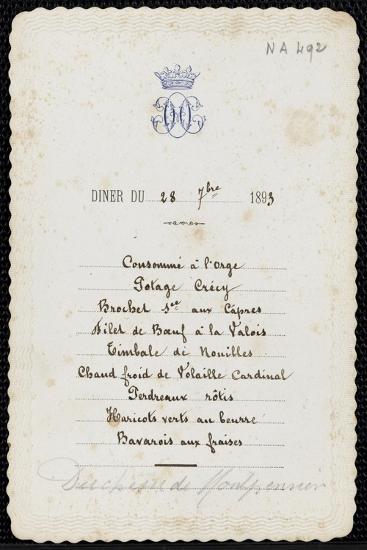 NA 492
DINER DU 28 7bre 1893
Consommé à l'Orge
Potage Crécy
Brochet sce aux Câpres
Filet de Bœuf à la Valois
Timbale de Nouilles
Chaud froid de Volaille Cardinal
Perdreaux rôtis
Haricots verts au beurre
Bavarois aux fraises
Duchesse de Montpensier